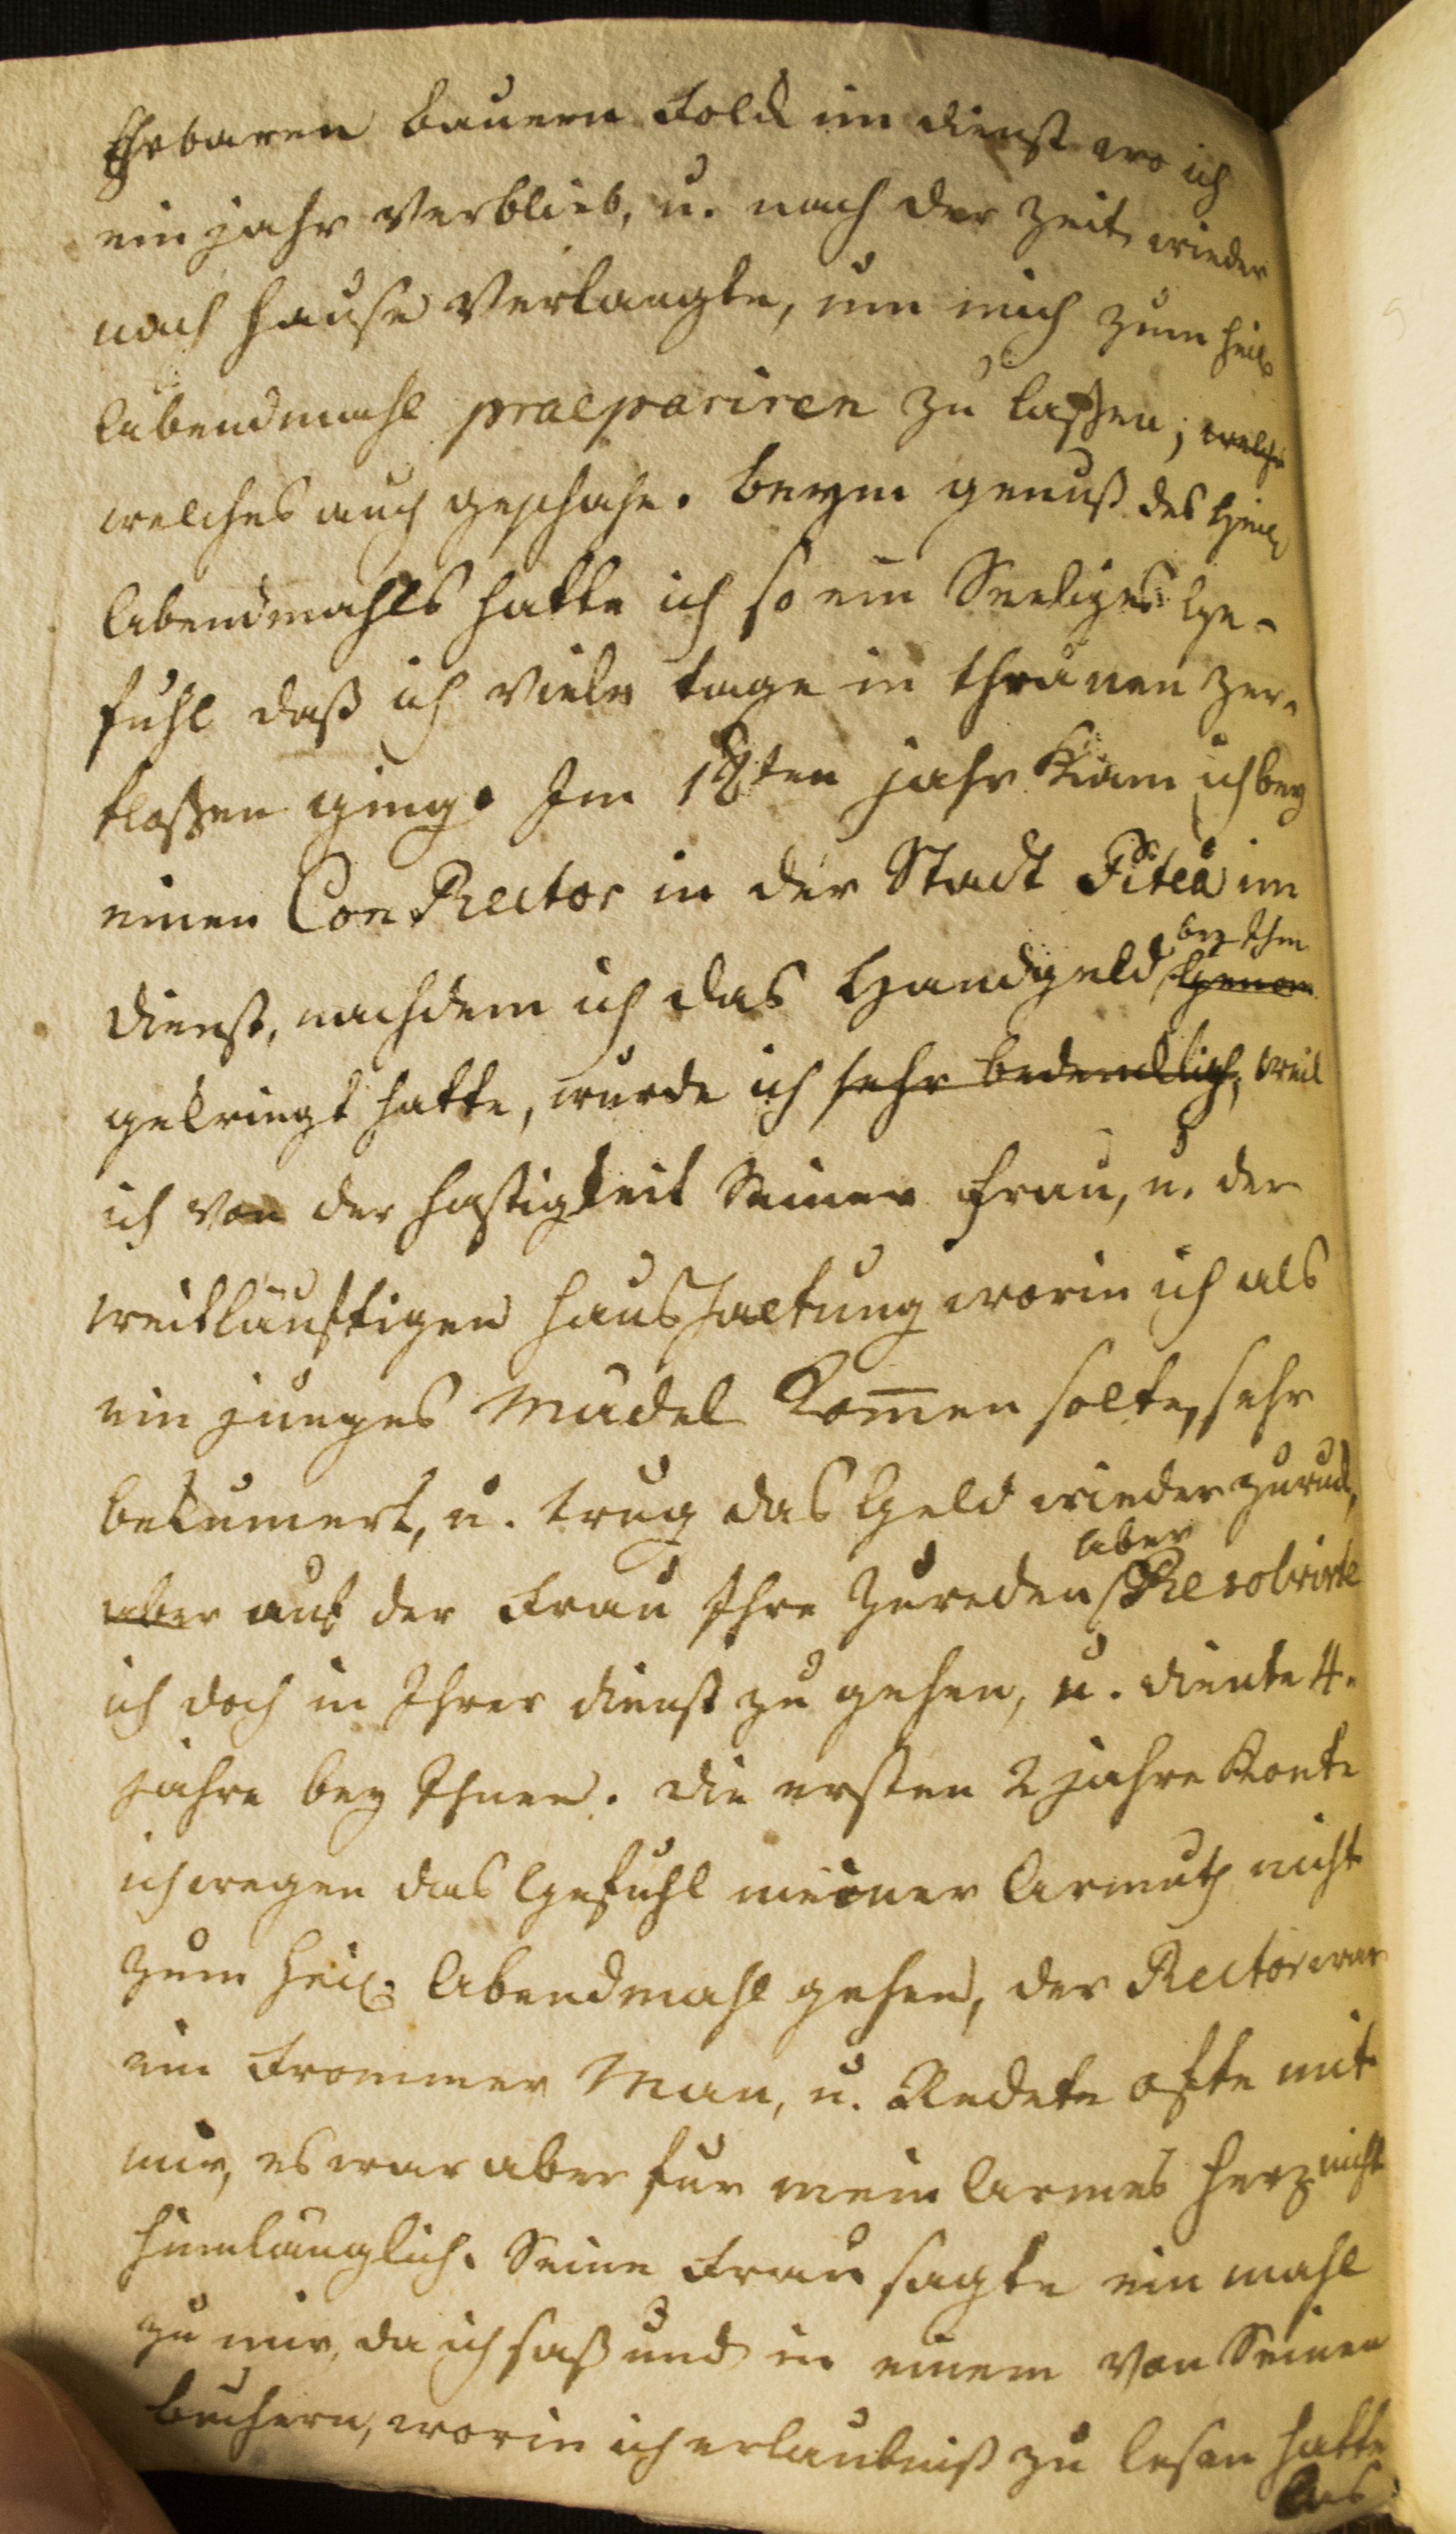 Ehrbaren bauern Folck im dienst wo ich
ein jahr verblieb, u. nach der zeit wieder
nach hause verlangte, um mich zum heil.
Abendmahl praepariren zu laßen; welche
welches auch geschahe. beym genuß des heil.
Abendmahls hatte ich so ein Seeliges Ge-
fuhl daß ich viele tage in thränen zer-
floßen ging. Im 18ten jahr kam ich bey
einen Con Rector in der Stadt Piteå im
bey Ihm
dienst, nachdem ich das Handgeld Genom
gekriegt hatte, wurde ich sehr bedencklich, weil
ich von der hastigkeit Seiner frau, u. der
weitläuftigen haushaltung worin ich als
ein junges Mädel kom̄en solte, sehr
bekumert, u. trug das Geld wieder zurück,
aber
aber auf der Frau Ihre Zureden Resolvirte
ich doch in Ihrer dienst zu gehen, u. diente 4.
jahre bey Ihnen. die ersten 2 jahre konte
ich wegen das Gefuhl meiner Armuth nicht
zum heil. Abendmahl gehen, der Rector war
ein frommer Man, u. Redete ofte mit
mir, es war aber fur mein Armes herz nicht
hinlänglich. Seine Frau sagte ein mahl
zu mir, da ich saß und in einem von Seinen
buchern, worin ich erlaubniß zu lesen hatte
las